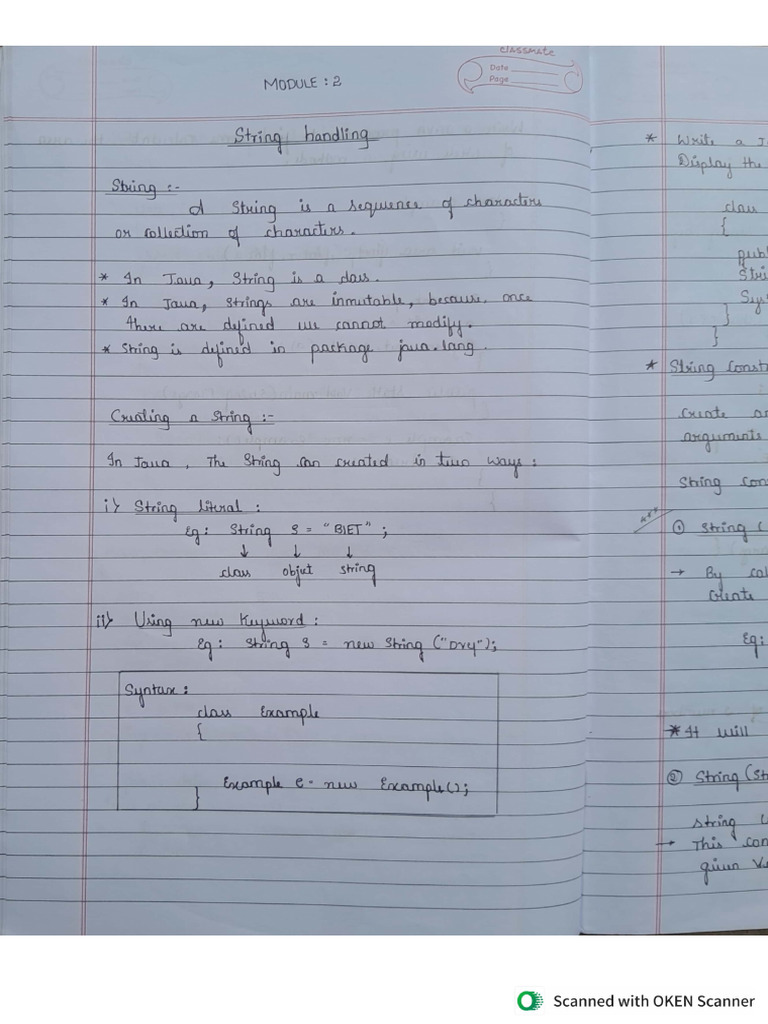 classmate
Date
Page
MODULE : 2
String handling
String :-
A String is a sequence of characters
or collection of characters.
* In Java, String is a class.
* In Java, Strings are inmutable, because, once
there are defined we cannot modify.
* String is defined in package java.lang.
Creating a String :-
In Java, The String can created in two ways :
i) String literal :
Eg : String S = "BIET" ;
↓ ↓ ↓
class object string
ii) Using new Keyword :
Eg : String S = new String ("DVG");
Syntax :
class Example
{
Example e = new Example();
}
* Write a J
Display the
class
{
publ
Stri
Sys
}
}
* String Const
Create an
arguments
String Con
① String (
→ By cal
Create
Eg:
* It will
② String (St
String (
→ This con
given V
Scanned with OKEN Scanner